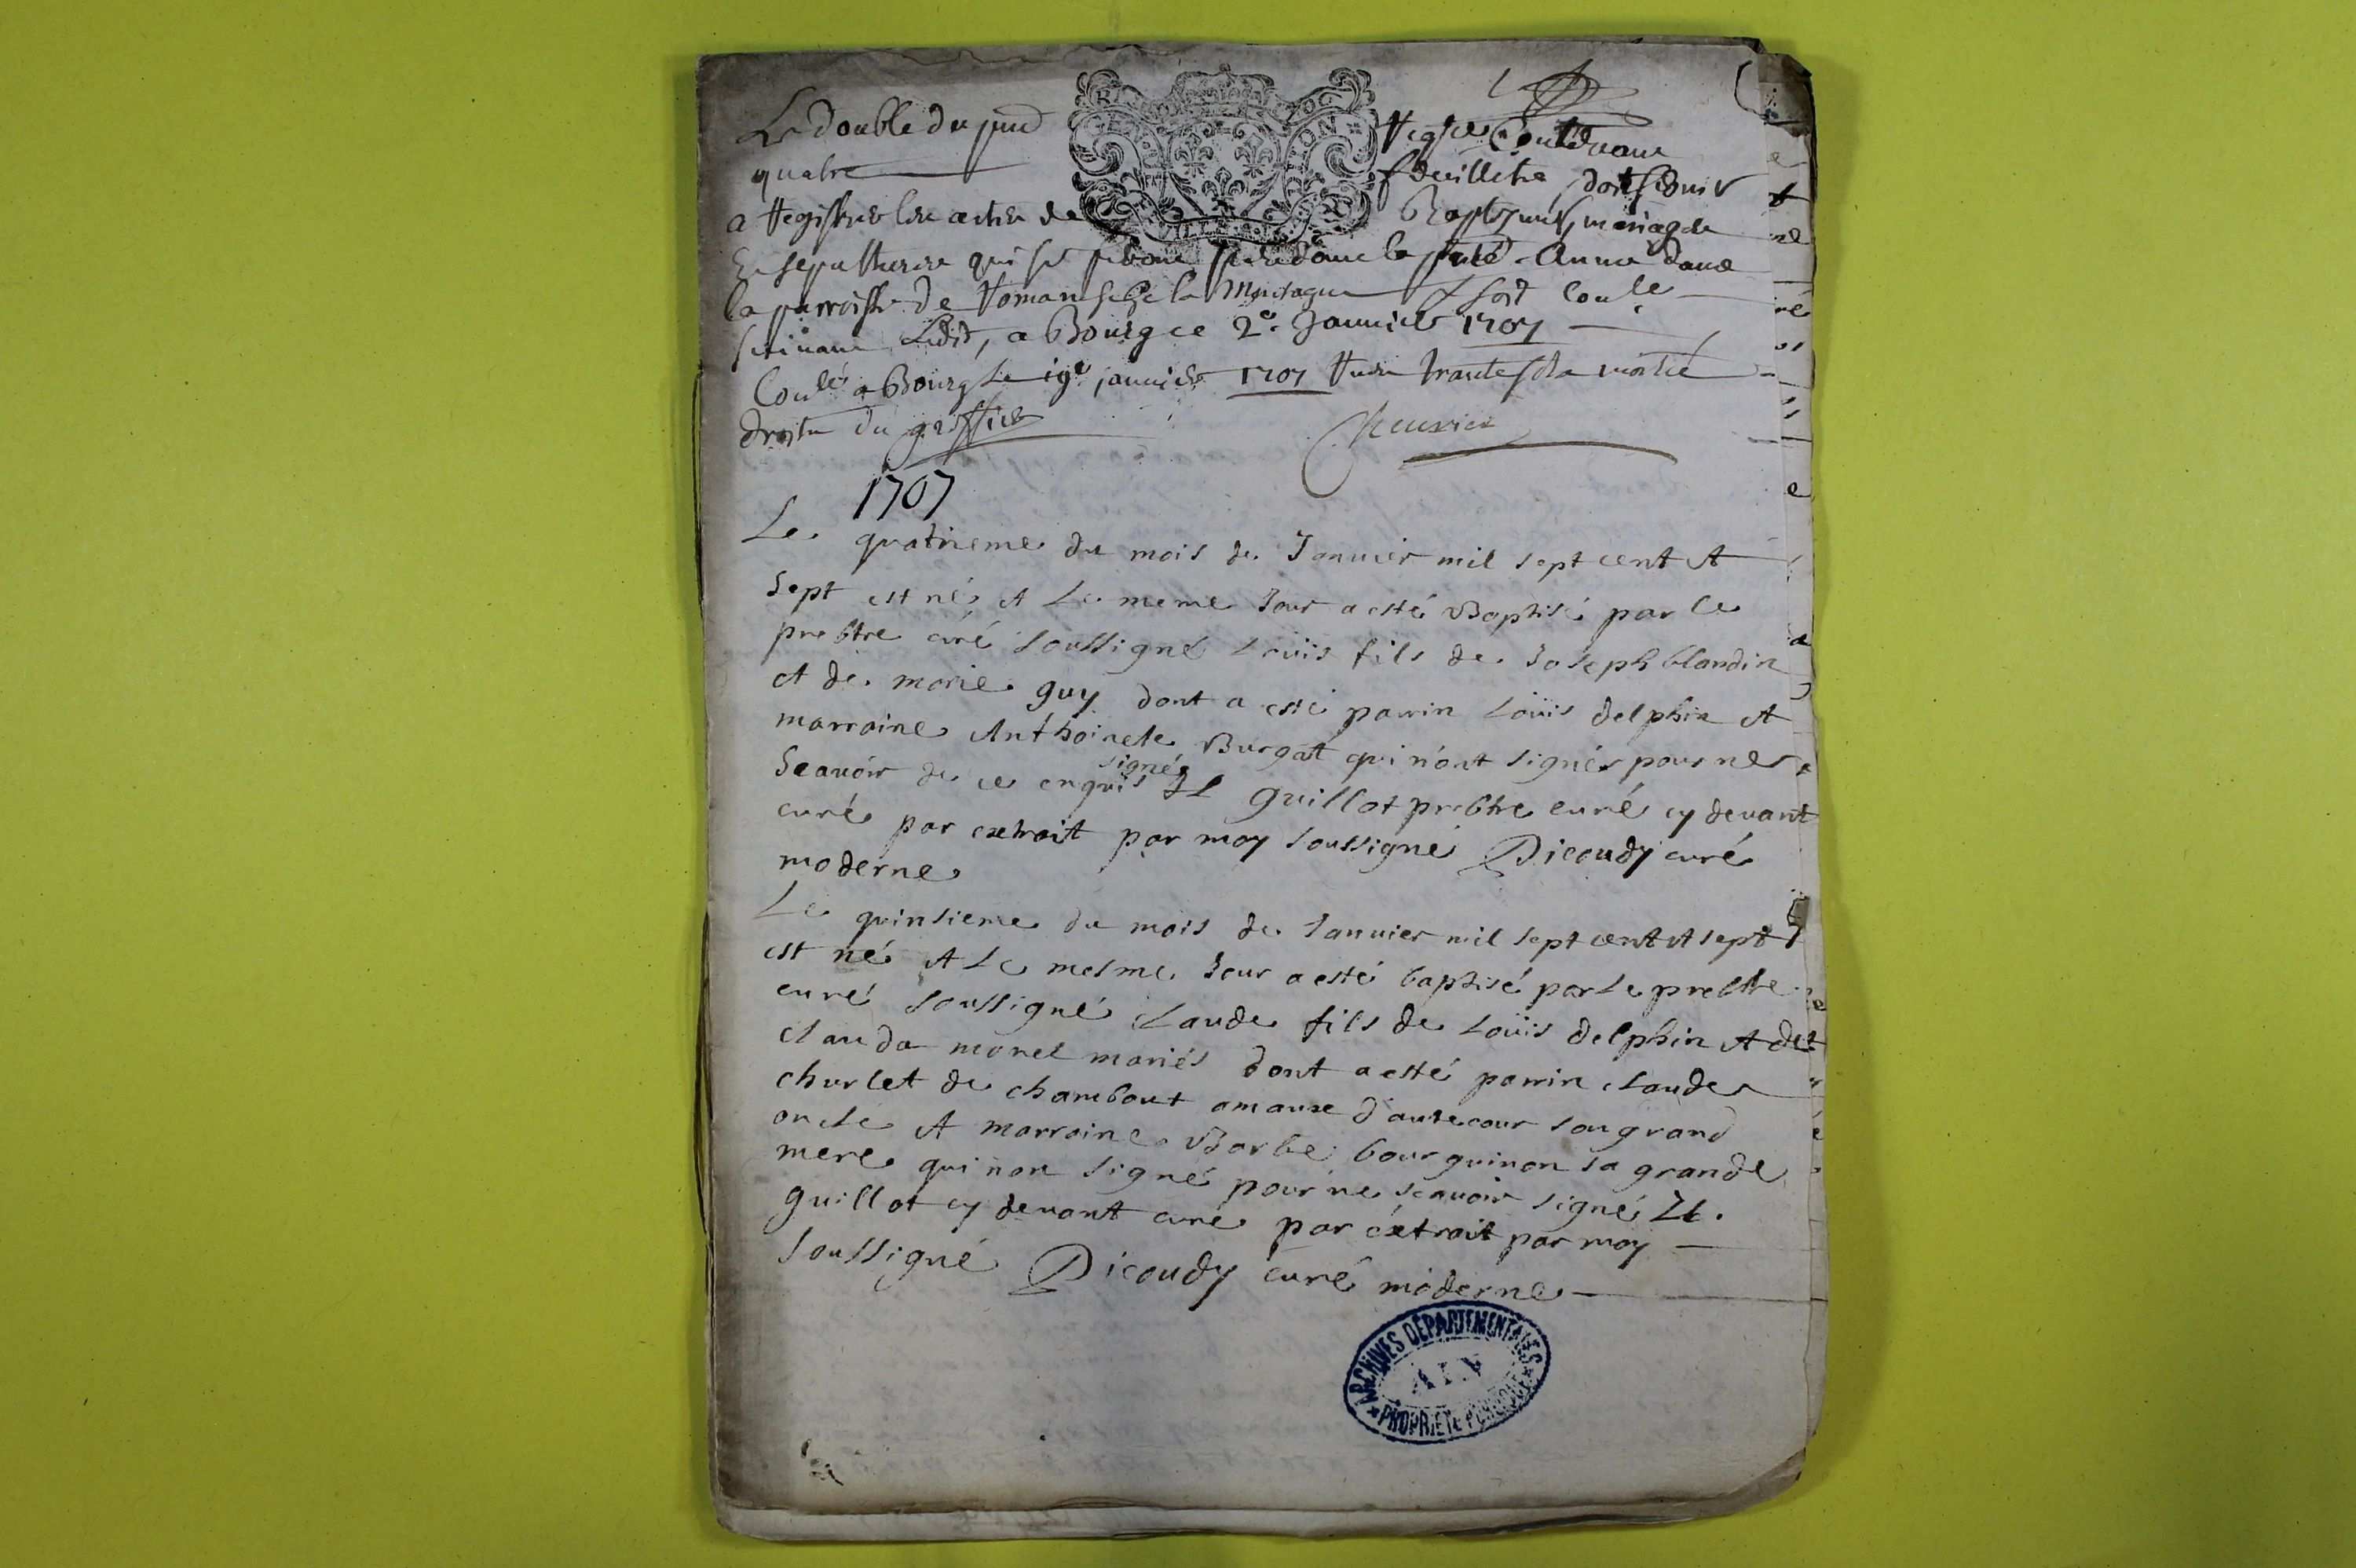 Le double du pnt Regre Contenant
quatre feuillets doit servir
a Registrer les actes de Baptesmes, mariages
Et sepultures qui se feront pendant la pnte Année dans
la parroisse de Romanesche la Montagne Et soit Conle
suivant Ledit, a Bourg ce 2e Janvier 1707
Conlé a Bourg Le ige janvier 1707 Receu trante sols moitié
droits du greffier Cheurier
1707
Le quatrieme du mois de Ianuier mil sept cent et
sept est né et Le meme Iour a esté Baptisé par le
prebtre curé soussigné Loüis fils de Ioseph blandin
et de marie guy dont a esté parrin Loüis delphin et
marraine Anthoinete Burgat qui n'ont signés pour ne
scauoir de ce enquis signés guillot prebtre curé cy devant
curé par extrait par moy soussigné Dicoudy curé
moderne
Le quinsieme du mois de Ianuier mil sept cent et sept
est né et Le mesme Iour a esté baptisé par Le prebtre
curé soussigné Claude fils de Loüis delphin et de
clauda morel mariés dont a esté parrin claude
churlet de chambout amause d'autecour son grand
oncle et marraine Barbe bourguinon sa grande
mere qui non signé pour ne scauoir signé
guillot cy devant curé par éxtrait par moy
soussigné Dicoudy curé moderne
ARCHIVES DÉPARTEMENTALES
AIN
PROPRIÉTÉ PUBLIQUE